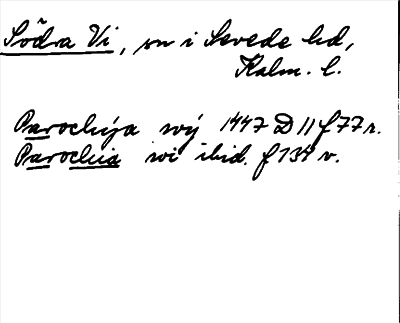 Södra Vi, sn i Sevede hd,
Kalm. l.
Parochija wij 1447 D 11 f 77 r.
Parochia wi ibid. f 134 v.